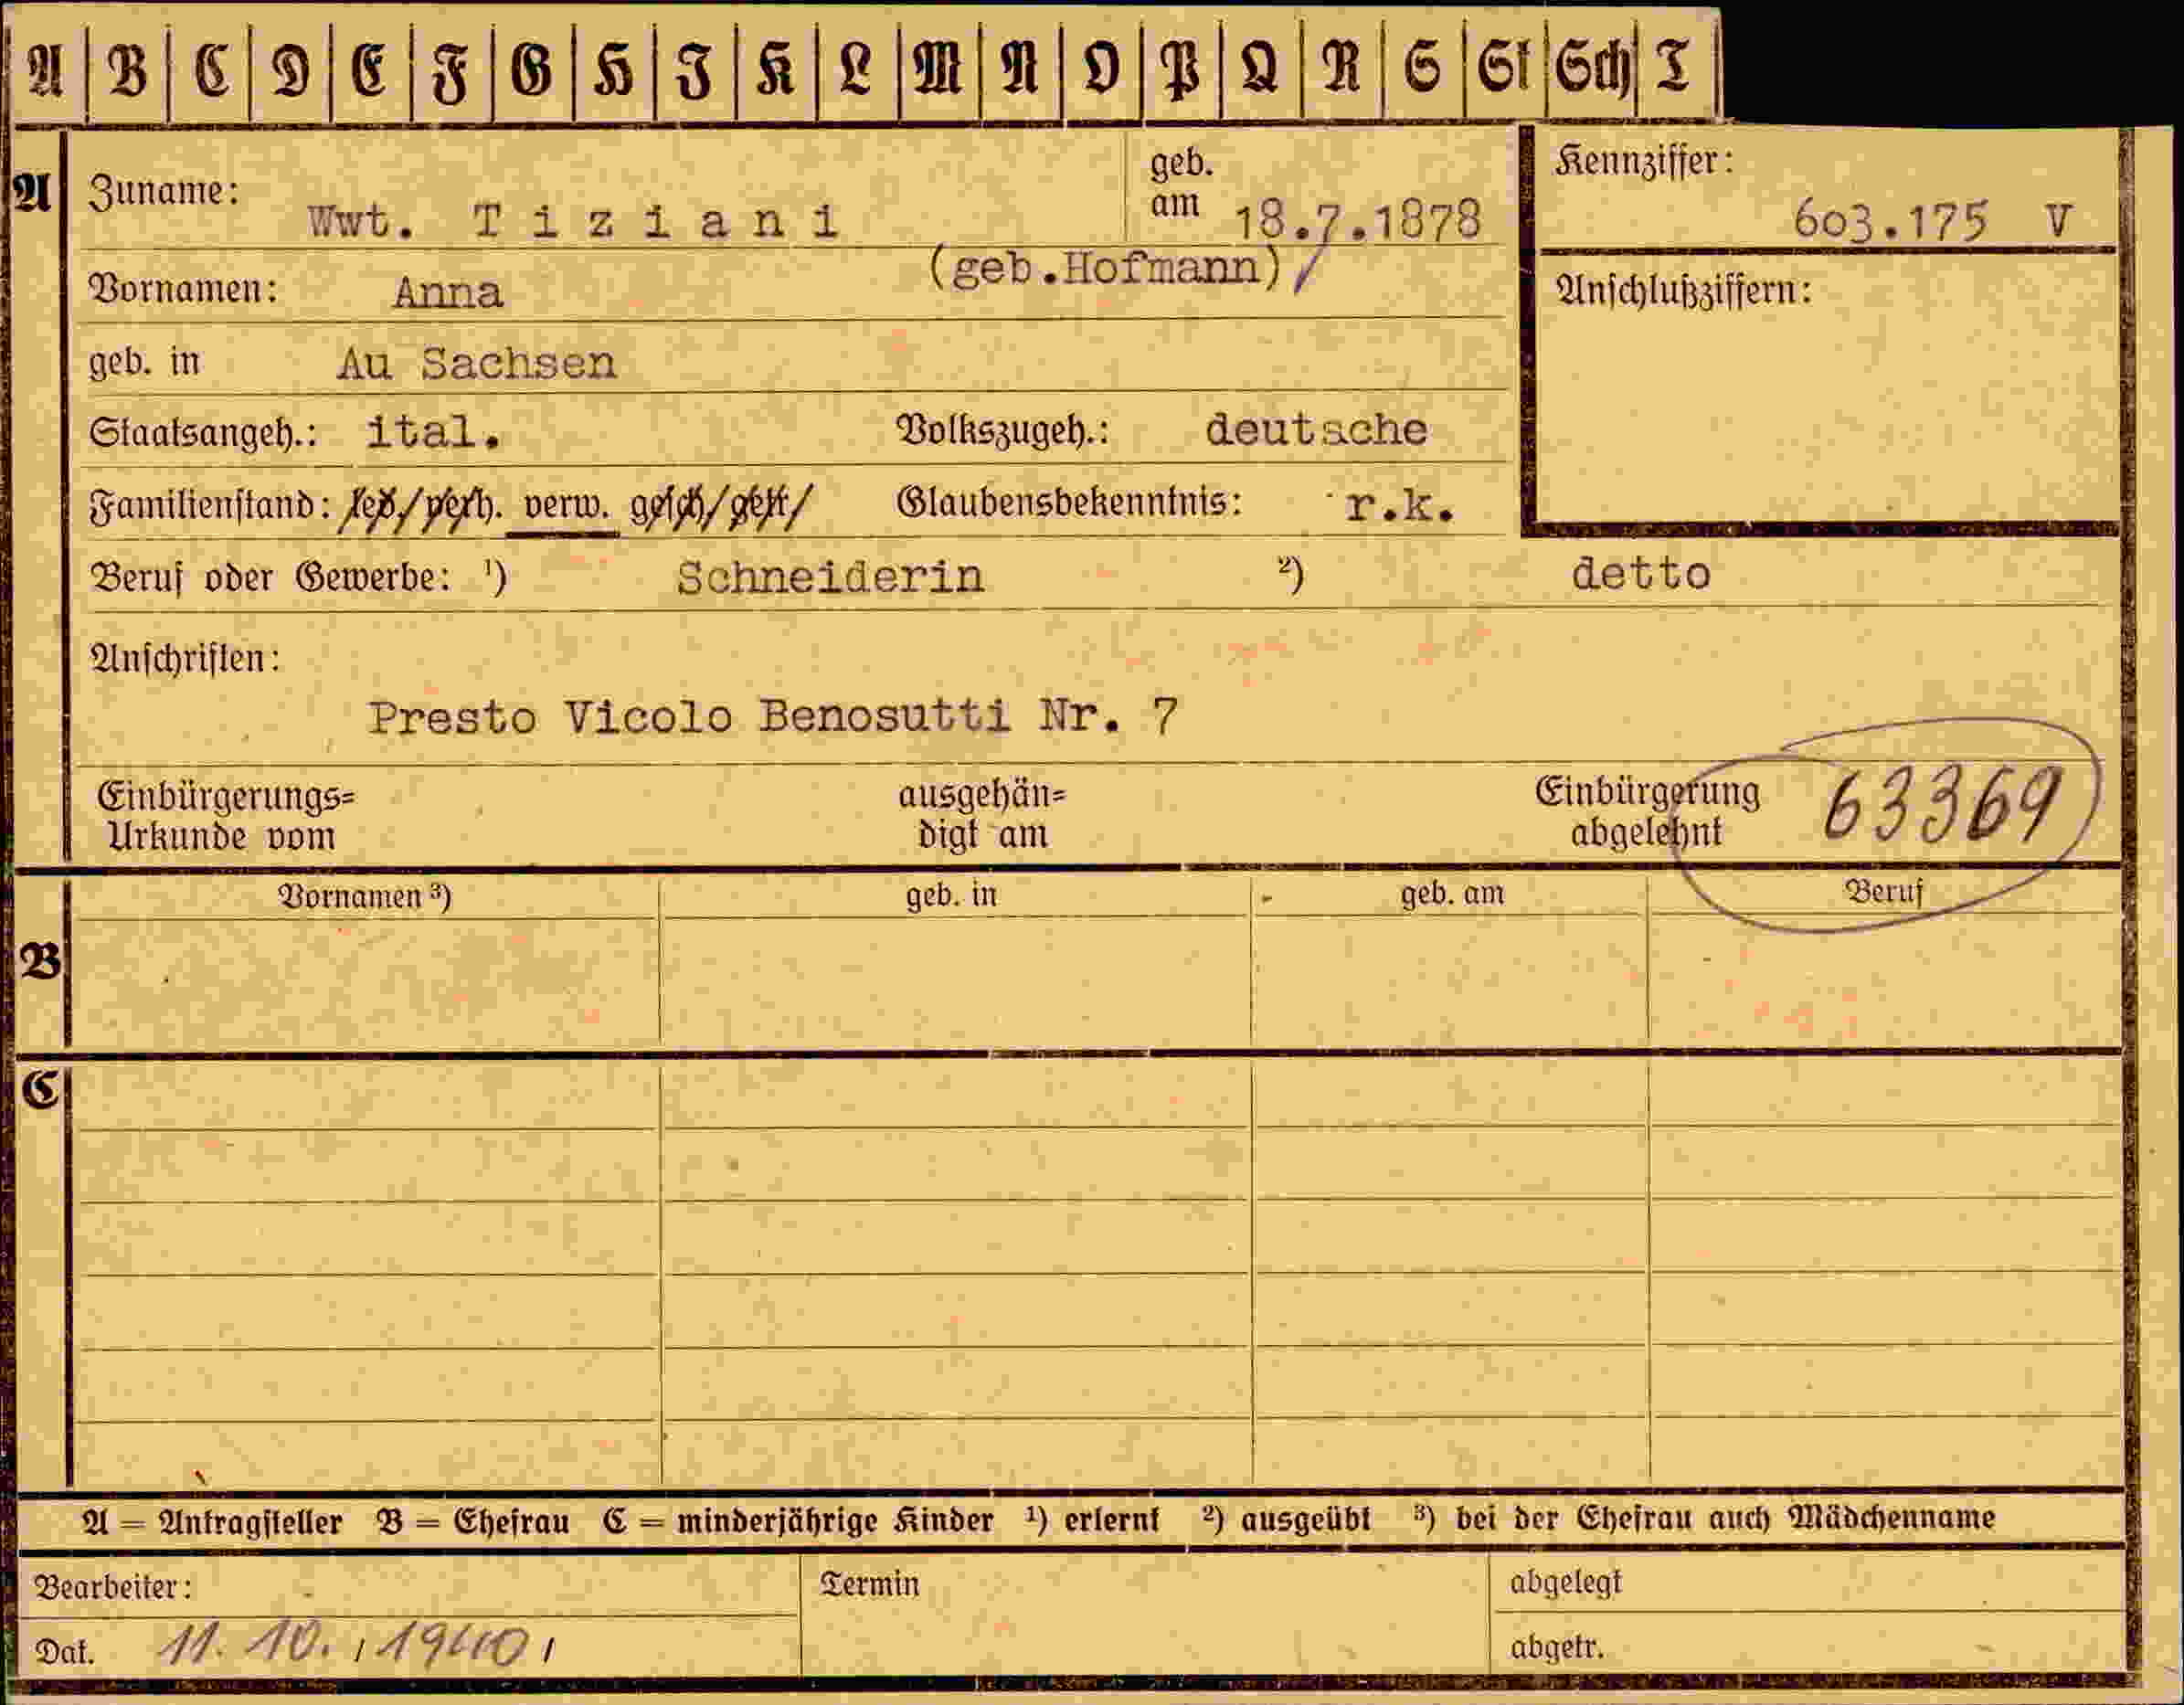 A B C D E F G H J K L M N O P Q R S St Sch T
A
Zuname: Wwt. Tiziani geb. am 18.7.1878
Kennziffer: 603.175 V
Vornamen: Anna (geb.Hofmann)/
Anschlußziffern:
geb. in Au Sachsen
Staatsangeh.: ital. Volkszugeh.: deutsche
Familienstand: led./verh. verw. gesch/getr/ Glaubensbekenntnis: r.k.
Beruf oder Gewerbe: ¹) Schneiderin ²) detto
Anschriften:
Presto Vicolo Benosutti Nr. 7
Einbürgerungs= ausgehän= Einbürgerung 63369
Urkunde vom digt am abgelehnt
B
Vornamen ³) geb. in geb. am Beruf
C
A = Antragsteller B = Ehefrau C = minderjährige Kinder ¹) erlernt ²) ausgeübt ³) bei der Ehefrau auch Mädchenname
Bearbeiter: Termin abgelegt
Dat. 11. 10. / 1940 / abgetr.